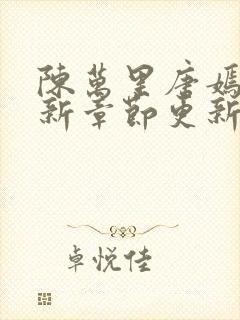 陳萬里唐嫣
新章節更新
卓悅佳